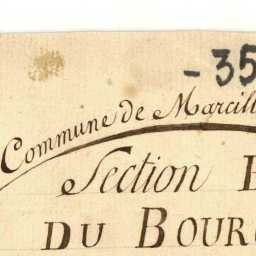 - 35
Commune de Marcill
Section
DU BOURG